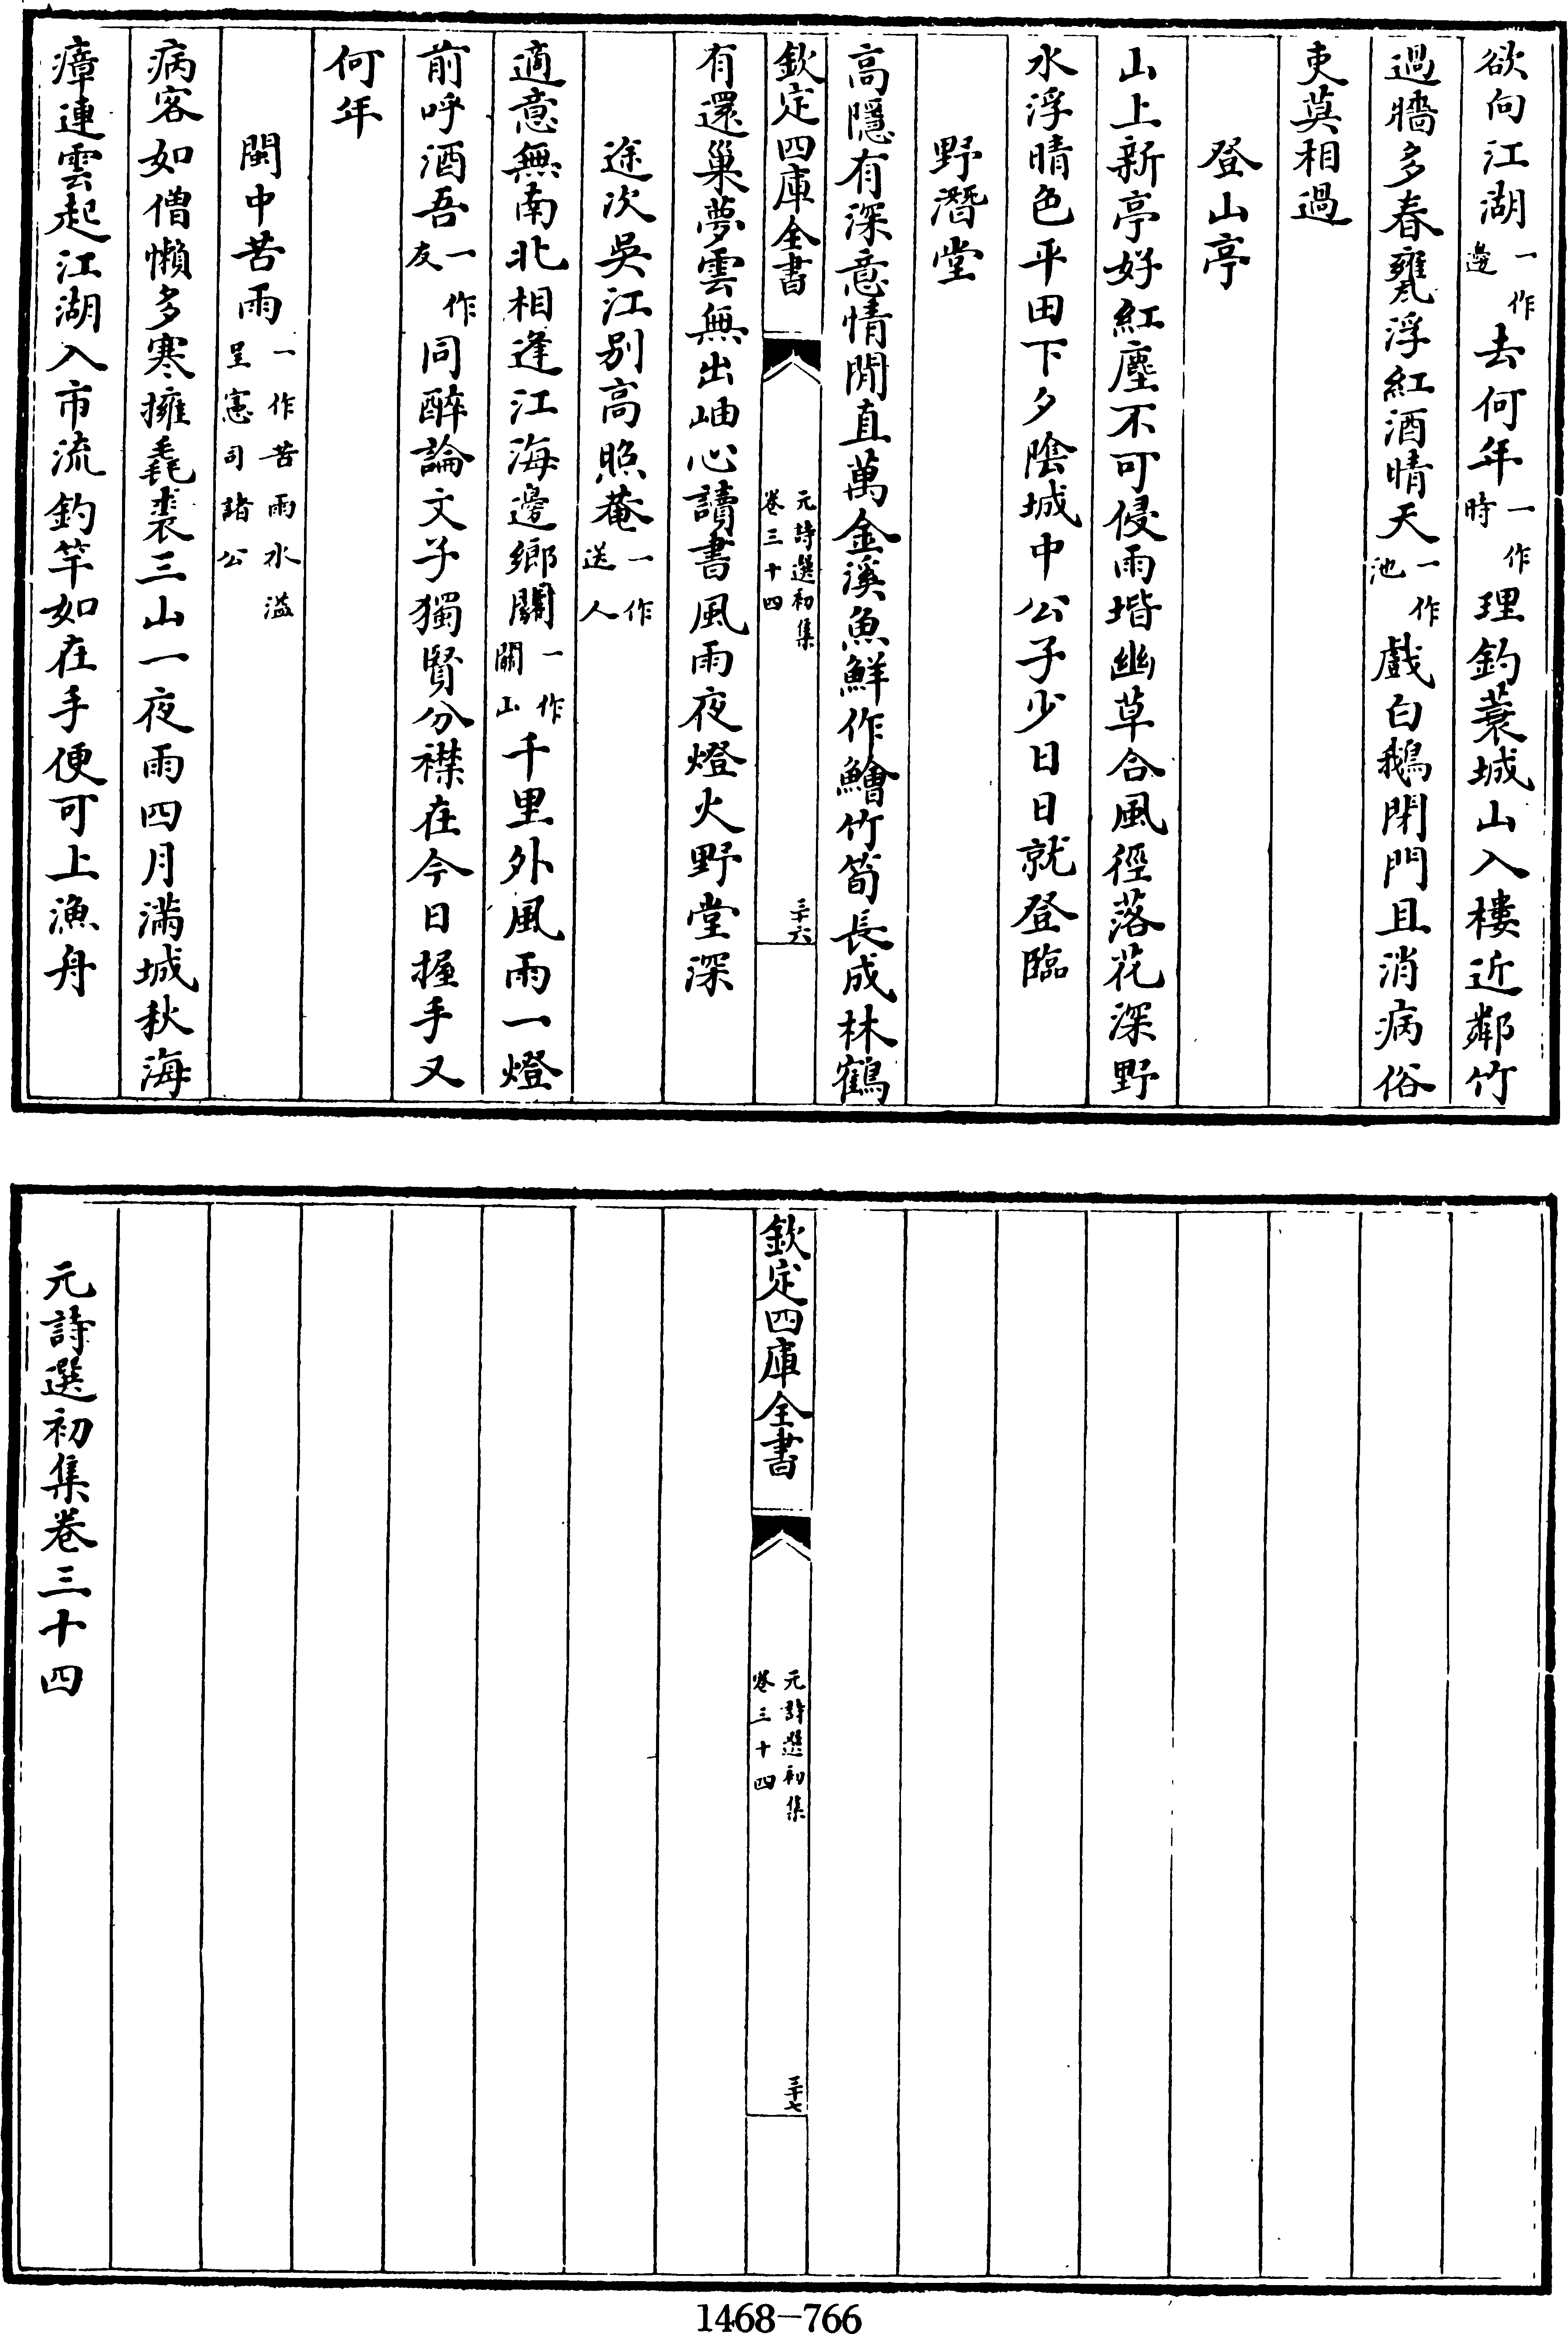 欲向江湖一作邊去何年一作時理釣蓑城山入樓近鄰竹
過牆多春甕浮紅酒情天一作池戲白鵝閉門且消病俗
吏莫相過
登山亭
山上新亭好紅塵不可侵雨堦幽草合風徑落花深野
水浮晴色平田下夕陰城中公子少日日就登臨
野潛堂
高隱有深意情閒直萬金溪魚鮮作鱠竹筍長成林鶴
欽定四庫全書
元詩選初集
卷三十四
三十六
有還巢夢雲無出岫心讀書風雨夜燈火野堂深
途次吳江別高照菴一作送人
適意無南北相逢江海邊鄉關一作關山千里外風雨一燈
前呼酒吾一作友同醉論文子獨賢分襟在今日握手又
何年
閩中苦雨一作苦雨水溢呈憲司諸公
病客如僧懶多寒擁毳裘三山一夜雨四月滿城秋海
瘴連雲起江湖入市流釣竿如在手便可上漁舟
欽定四庫全書
元詩選初集
卷三十四
三十七
元詩選初集卷三十四
1468-766